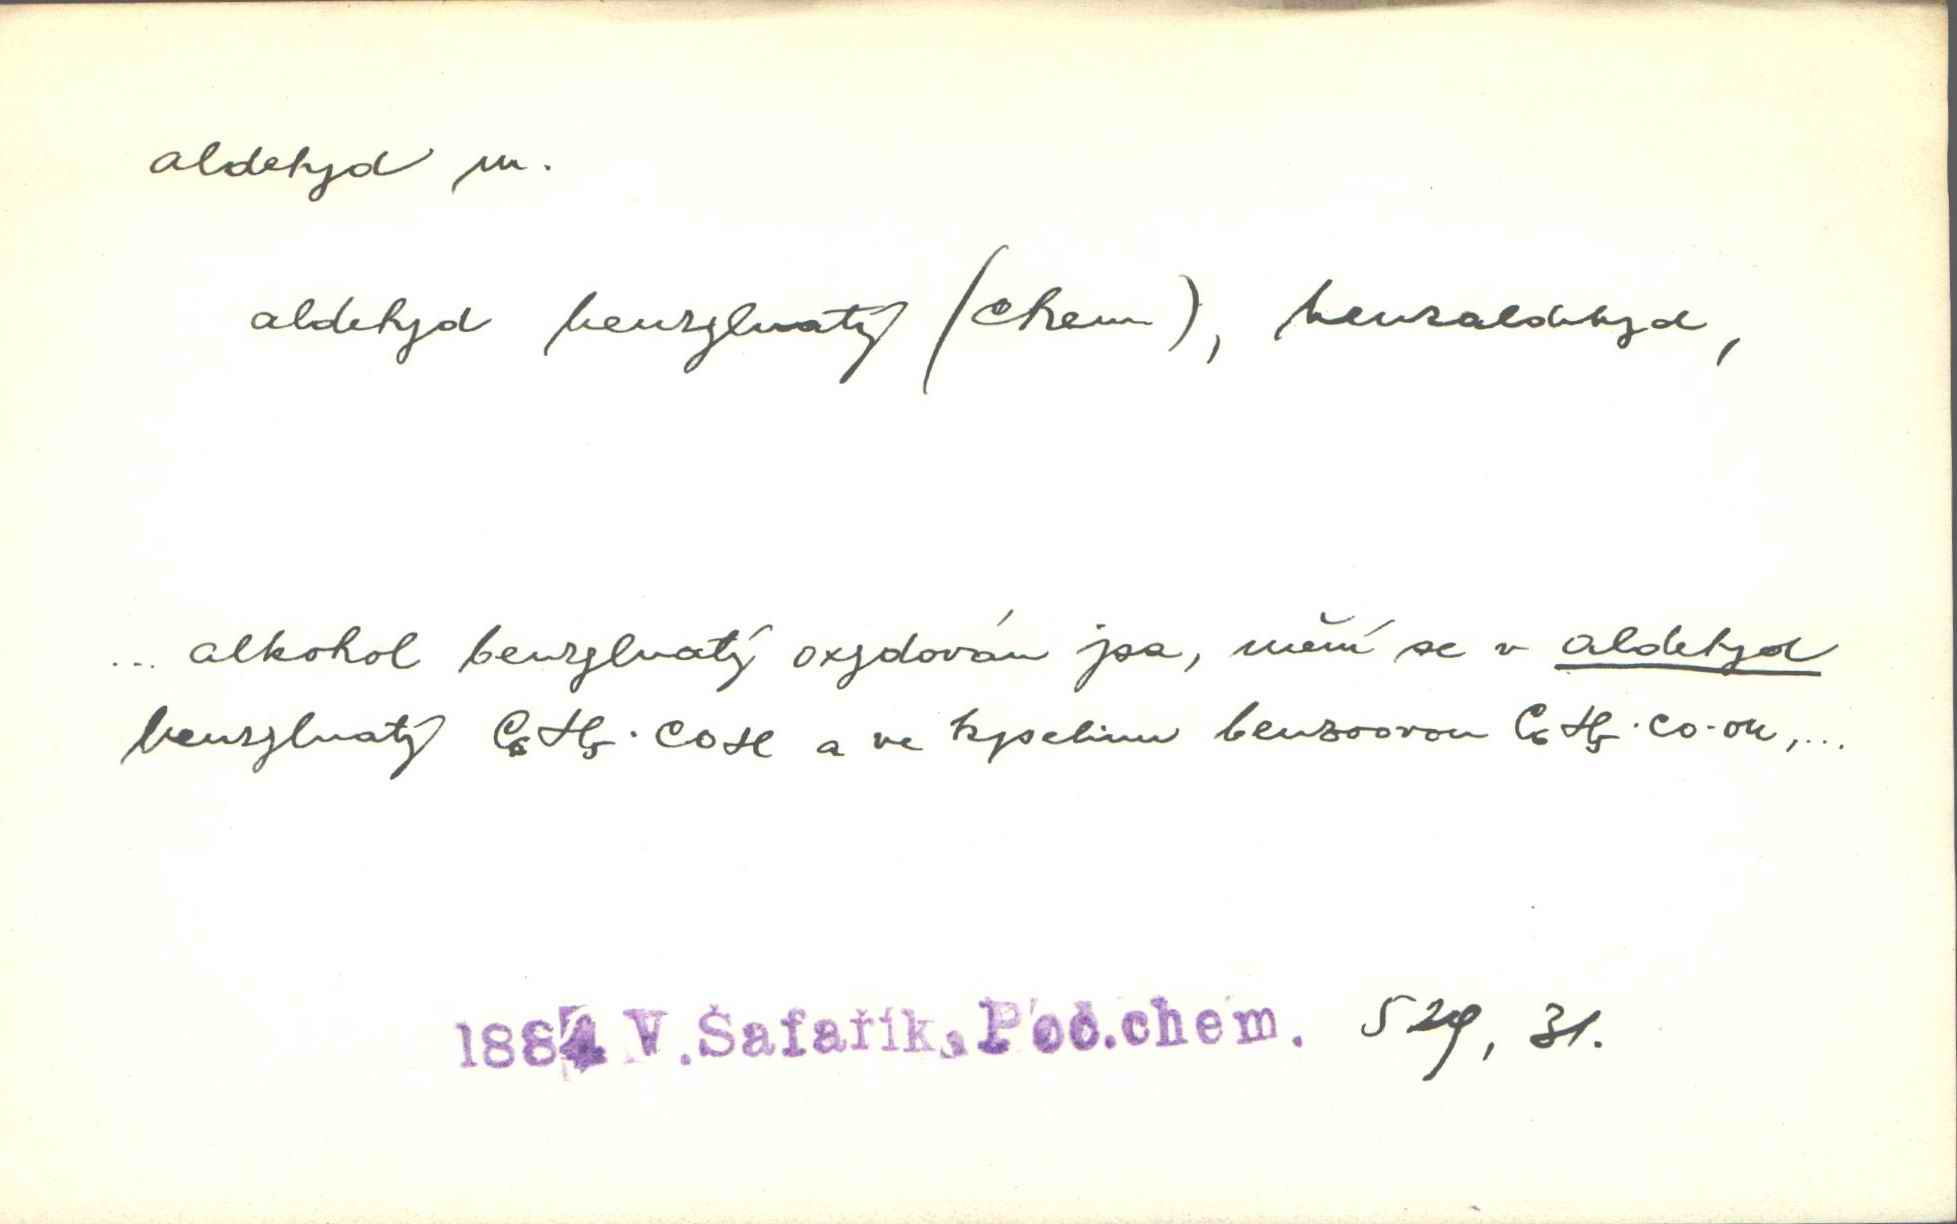 aldehyd m.
aldehyd benzylnatý (chem), benzaldehyd,
... alkohol benzylnatý oxydován jsa, mění se v aldehyd
benzylnatý C₆H₅·COH a ve kyselinu benzoovou C₆H₅·CO·OH,...
1884 V.Šafařík, Poč.chem. 529, 31.